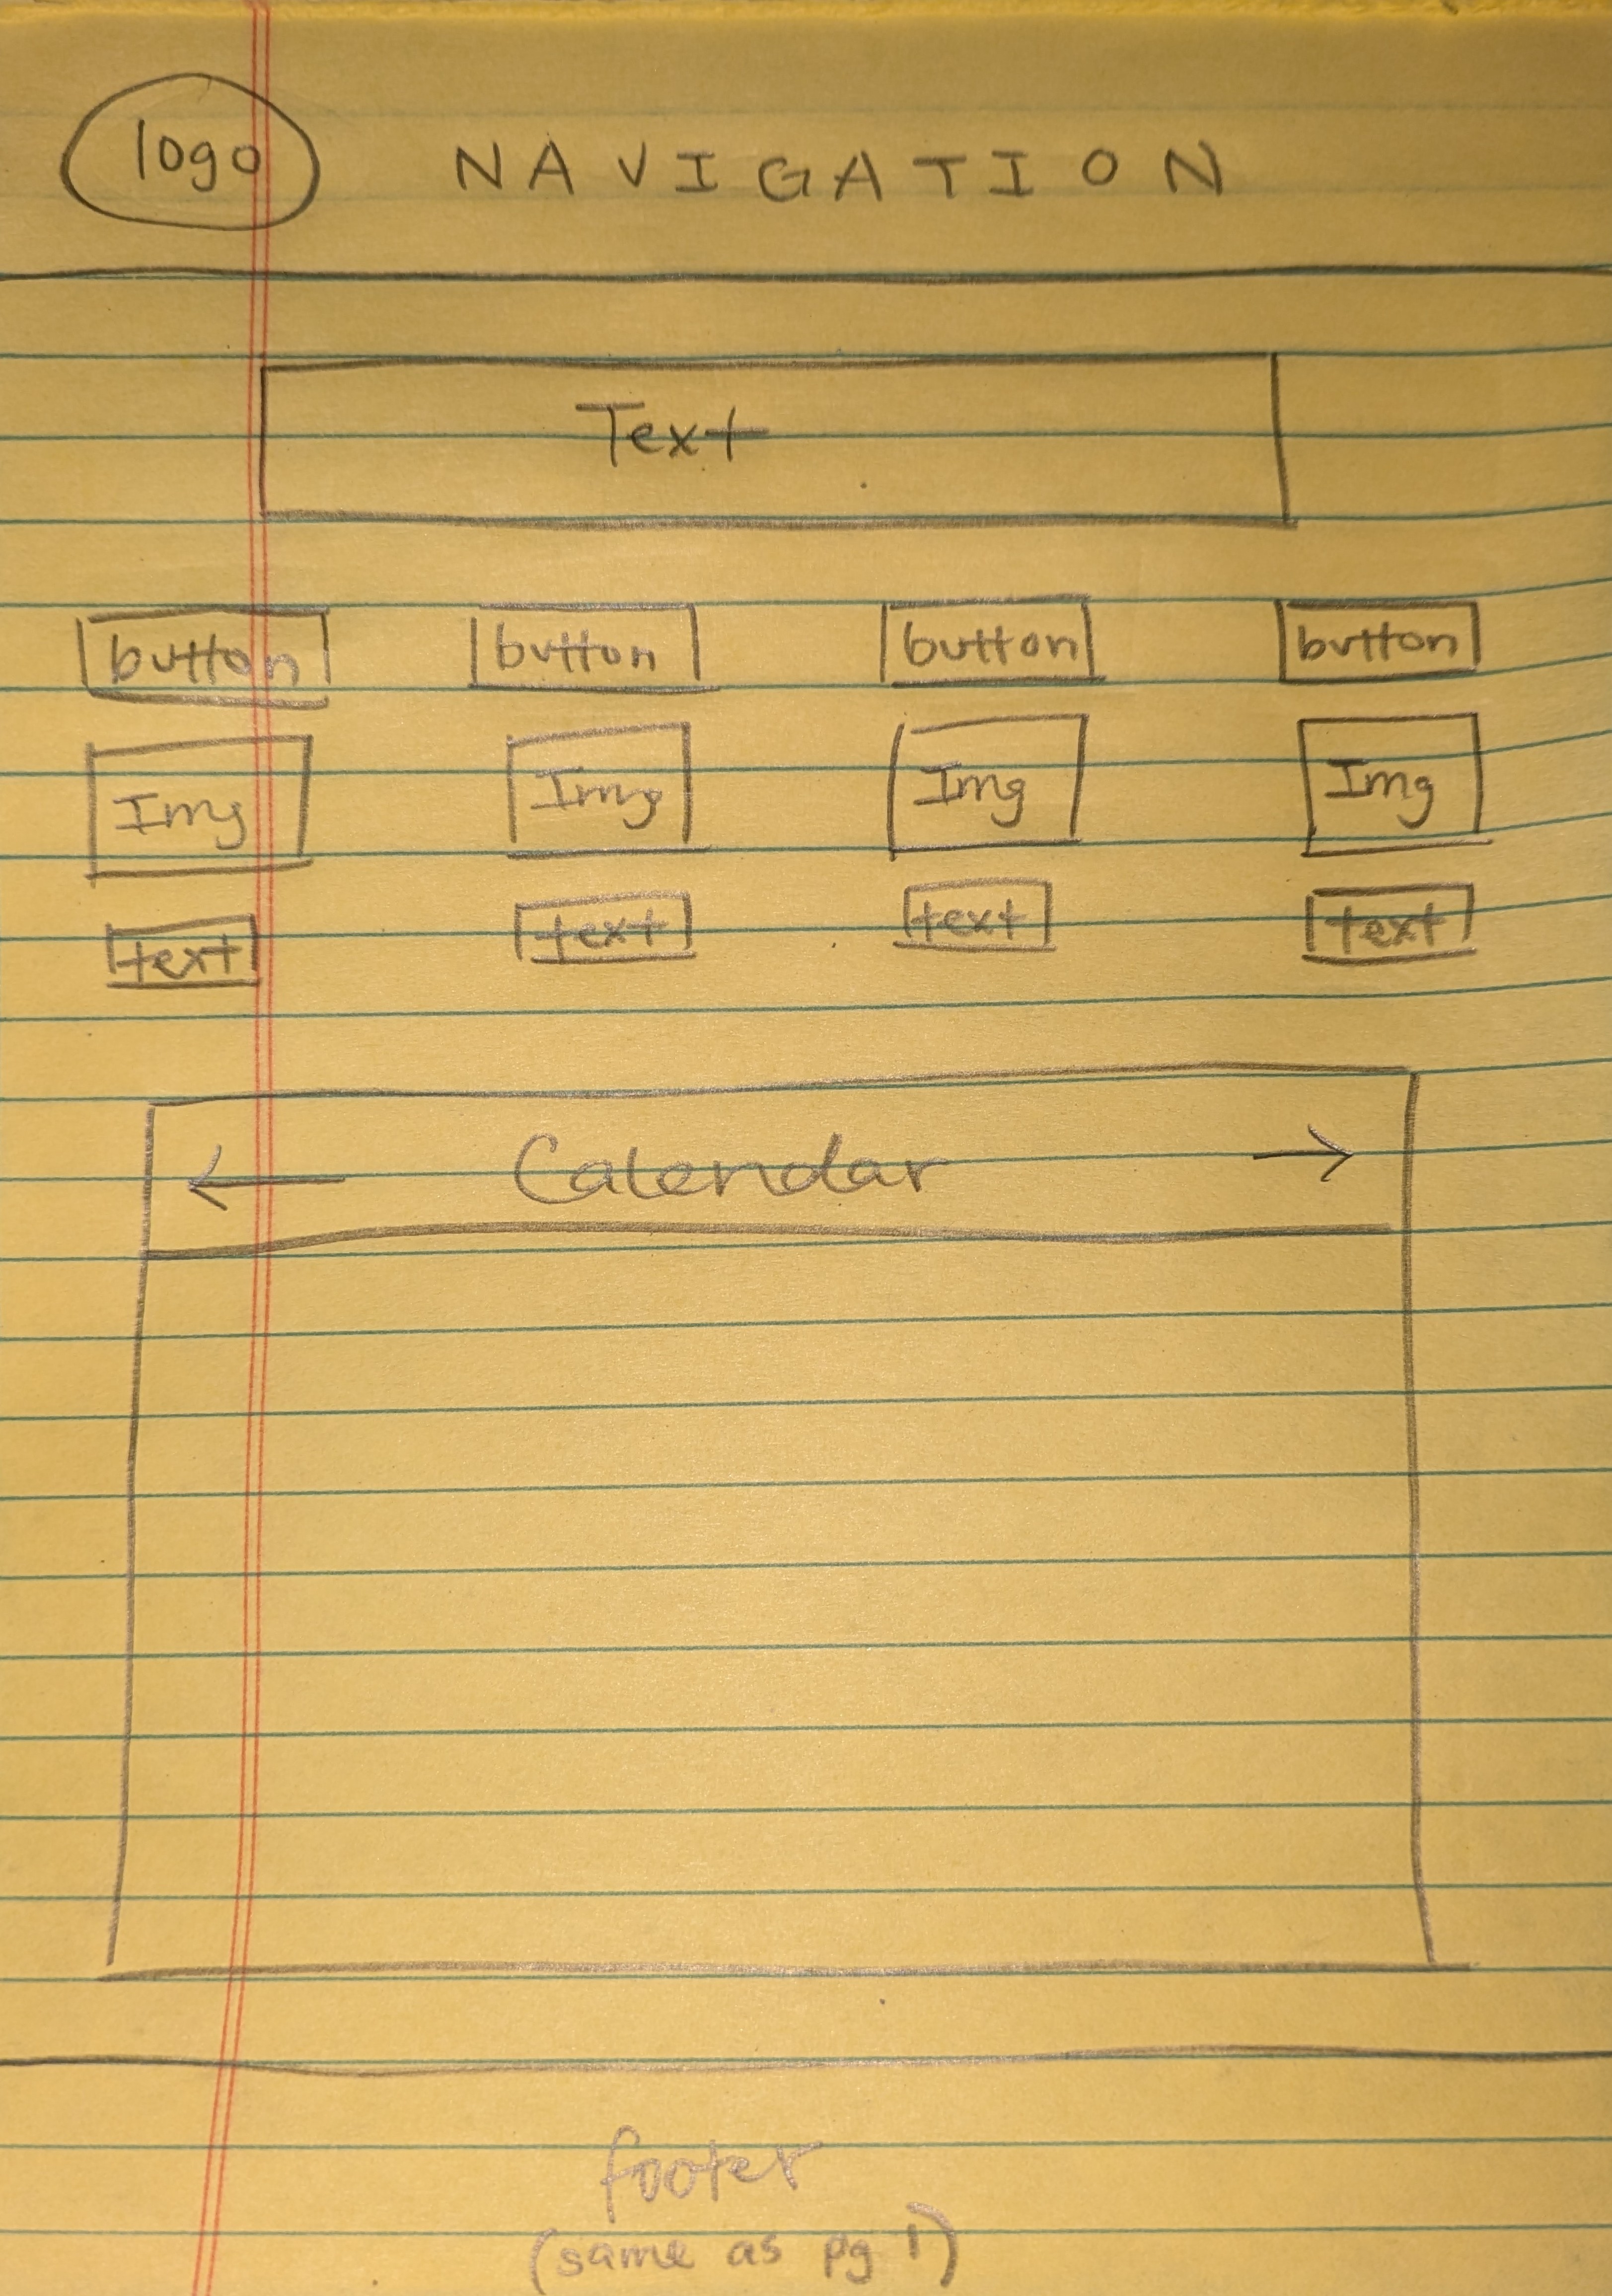 logo NAVIGATION
Text
button button button button
Img Img Img Img
text text text text
← Calendar →
footer
(same as pg 1)